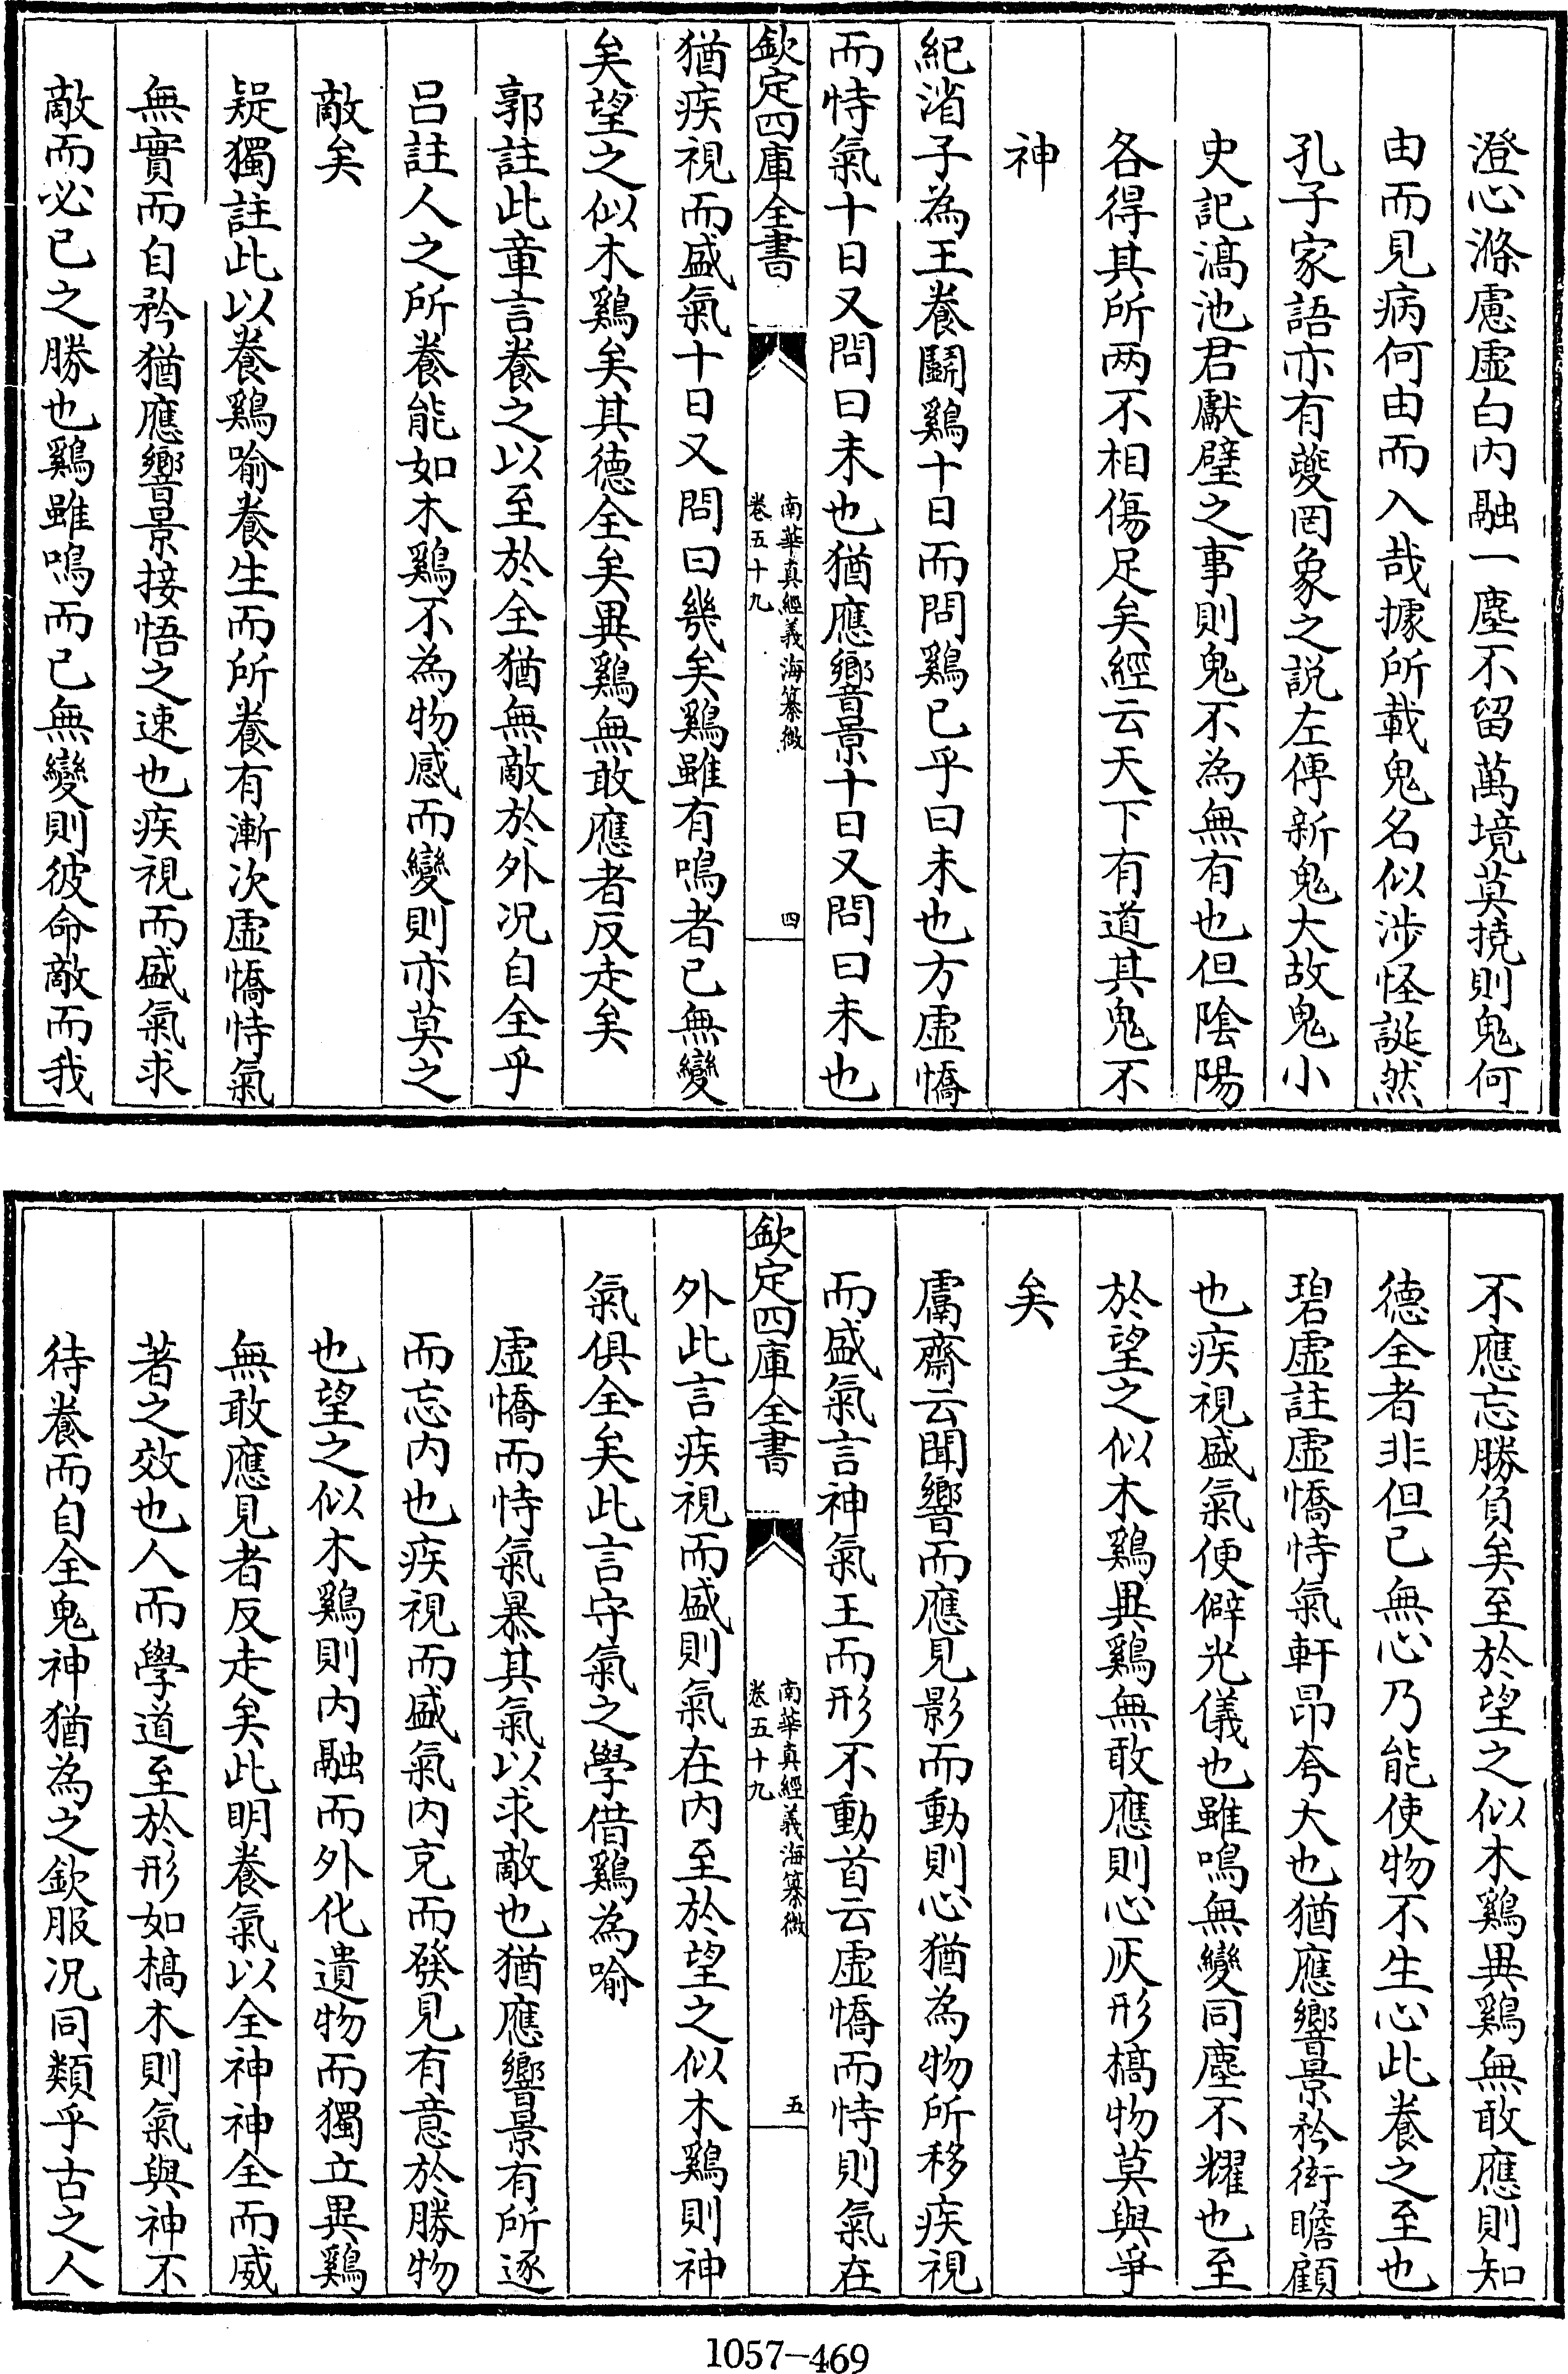 澄心滌慮虛白内融一塵不留萬境莫撓則鬼何
由而見病何由而入哉據所載鬼名似涉怪誕然
孔子家語亦有夔罔象之説左傳新鬼大故鬼小
史記滈池君獻璧之事則鬼不為無有也但陰陽
各得其所两不相傷足矣經云天下有道其鬼不
神
紀渻子為王養鬭鷄十日而問鷄已乎曰未也方虛憍
而恃氣十日又問曰未也猶應嚮景十日又問曰未也
欽定四庫全書
南華真經義海纂微
卷五十九
四
猶疾視而盛氣十日又問曰幾矣鷄雖有鳴者已無變
矣望之似木鷄矣其德全矣異鷄無敢應者反走矣
郭註此章言養之以至於全猶無敵於外况自全乎
吕註人之所養能如木鷄不為物感而變則亦莫之
敵矣
疑獨註此以養鷄喻養生而所養有漸次虛憍恃氣
無實而自矜猶應響景接悟之速也疾視而盛氣求
敵而必已之勝也鷄雖鳴而已無變則彼命敵而我
不應忘勝負矣至於望之似木鷄異鷄無敢應則知
德全者非但已無心乃能使物不生心此養之至也
碧虛註虛憍恃氣軒昂夸大也猶應響景矜衒瞻顧
也疾視盛氣便僻光儀也雖鳴無變同塵不耀也至
於望之似木鷄異鷄無敢應則心灰形槁物莫與爭
矣
鬳齋云聞響而應見影而動則心猶為物所移疾視
而盛氣言神氣王而形不動首云虛憍而恃則氣在
欽定四庫全書
南華真經義海纂微
卷五十九
五
外此言疾視而盛則氣在内至於望之似木鷄則神
氣俱全矣此言守氣之學借鷄為喻
虛憍而恃氣暴其氣以求敵也猶應響景有所逐
而忘内也疾視而盛氣内充而發見有意於勝物
也望之似木鷄則内融而外化遺物而獨立異鷄
無敢應見者反走矣此明養氣以全神神全而威
著之效也人而學道至於形如槁木則氣與神不
待養而自全鬼神猶為之欽服况同類乎古之人
1057-469